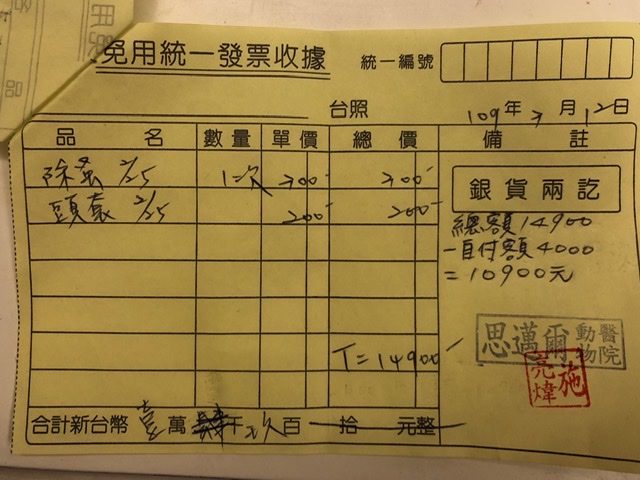 免用統一發票收據
統一編號
台照
109年3月12日
品名 數量 單價 總價 備註
除蚤 2/25 1次 300 300
頭套 2/25 200 200
銀貨兩訖
總額14900
-自付額4000
=10900元
T=14900
思邁爾動物醫院
施亮煒
合計新台幣壹萬肆千玖百拾元整